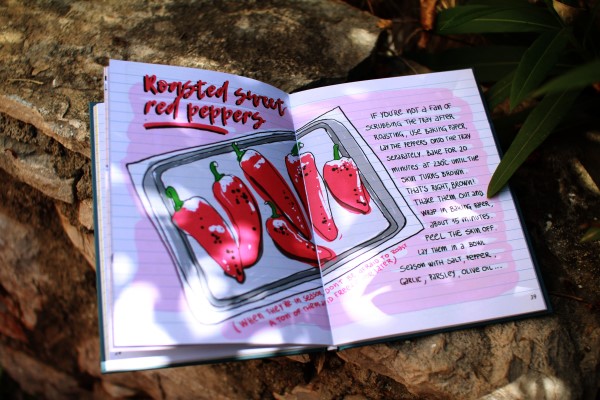 Roasted sweet
red peppers
(When they're in season, don't be afraid to roast
a ton of them and freeze for later)
IF YOU'RE NOT A FAN OF
SCRUBBING THE TRAY AFTER
ROASTING, USE BAKING PAPER.
LAY THE PEPPERS ONTO THE TRAY
SEPARATELY. BAKE FOR 20
MINUTES AT 230C UNTIL THE
SKIN TURNS BROWN.
THAT'S RIGHT, BROWN!
TAKE THEM OUT AND
WRAP IN BAKING PAPER,
ABOUT 15 MINUTES.
PEEL THE SKIN OFF.
LAY THEM IN A BOWL.
SEASON WITH SALT, PEPPER,
GARLIC, PARSLEY, OLIVE OIL...
29